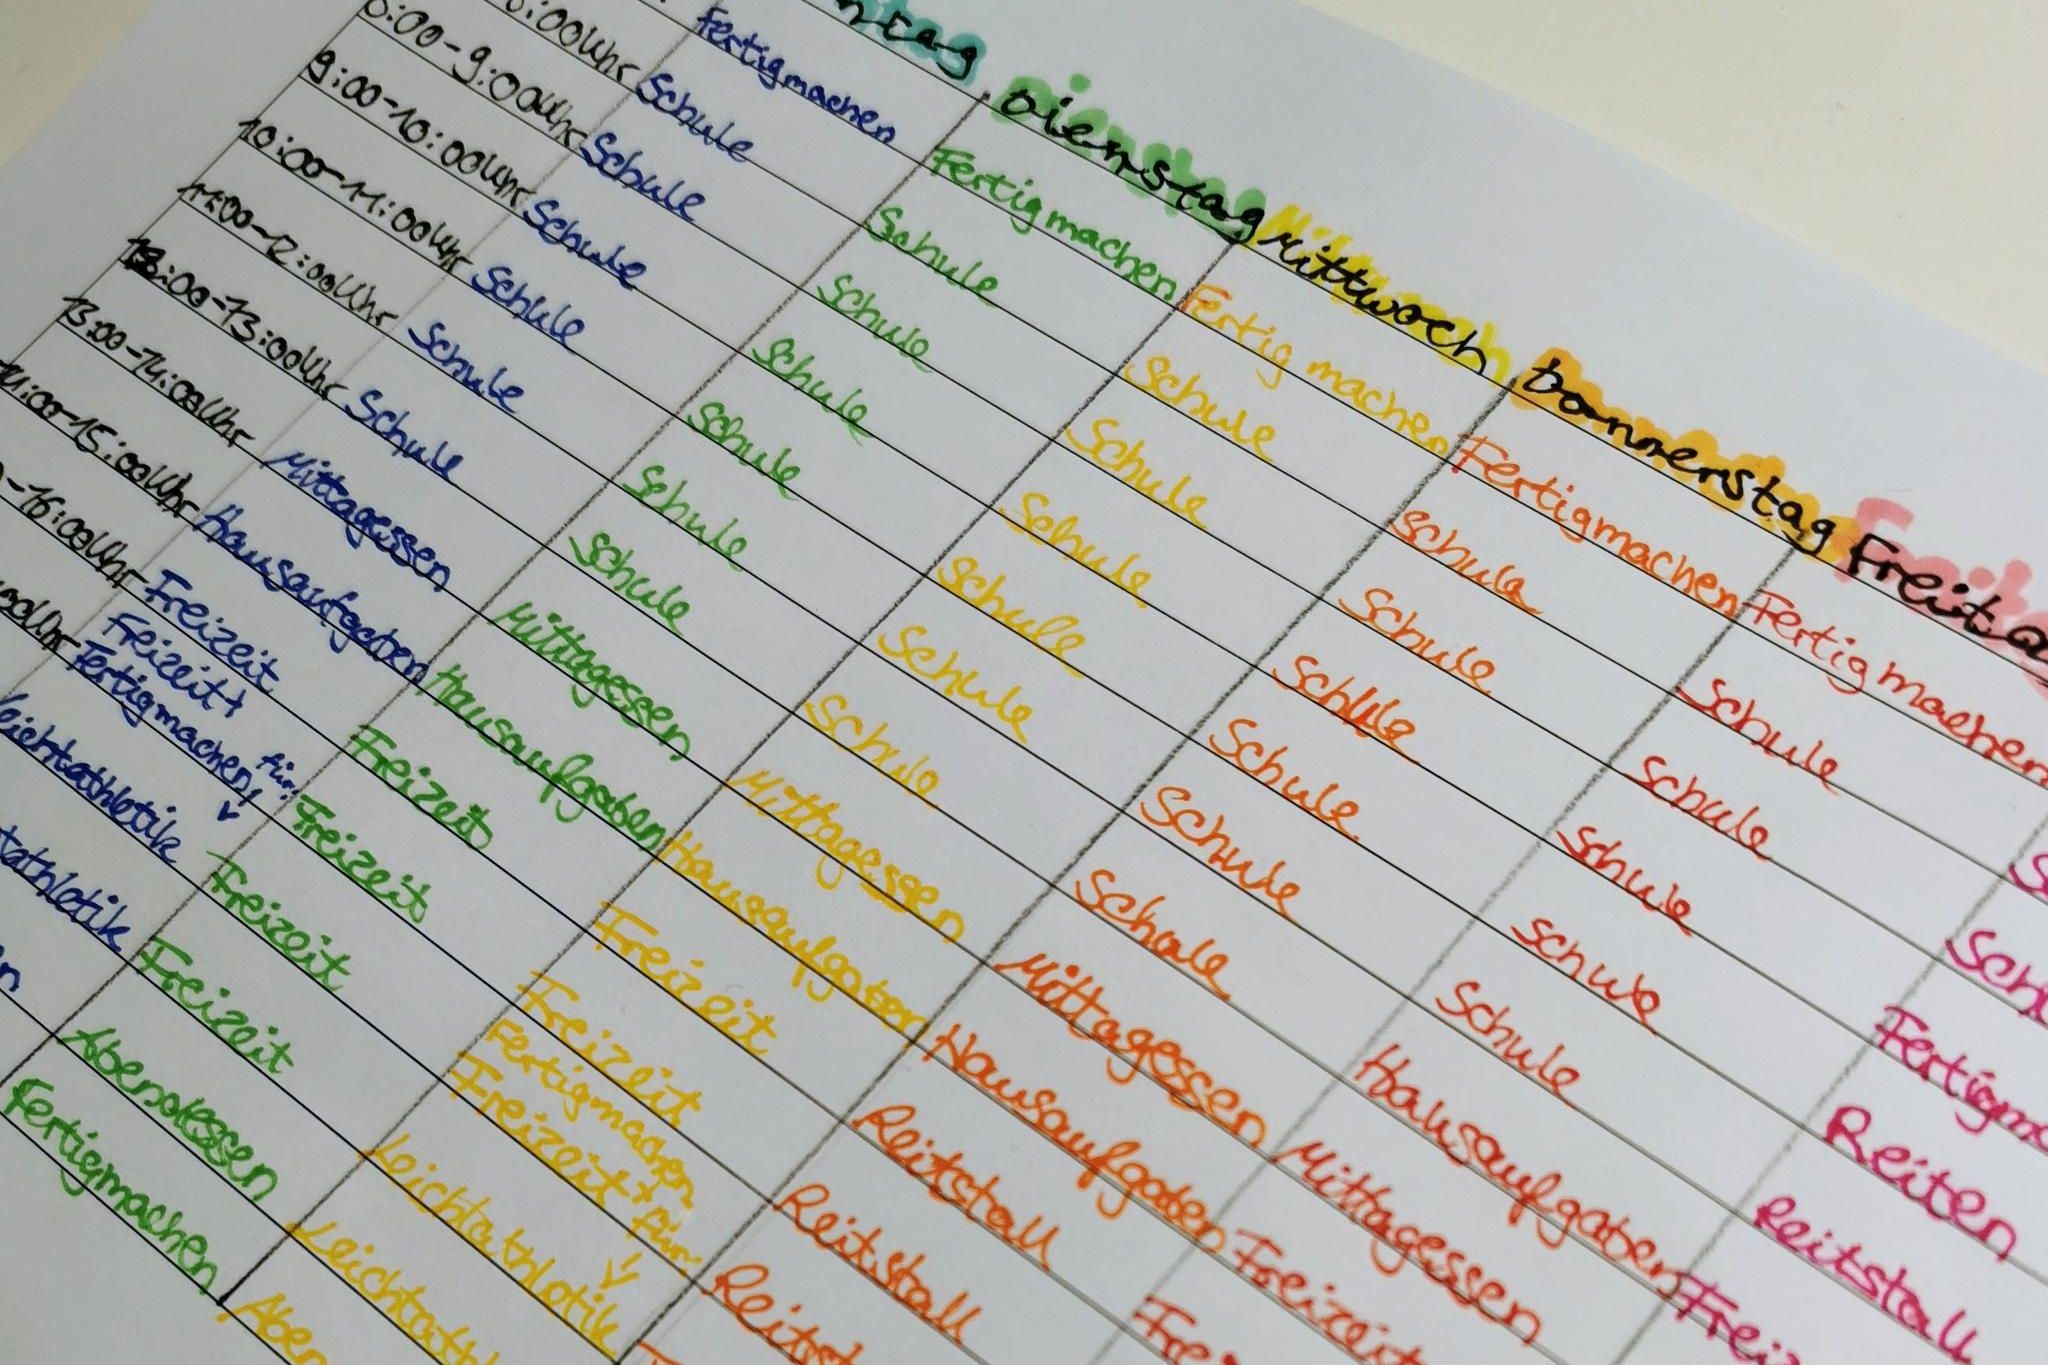 ntag Dienstag Mittwoch Donnerstag Freita
Fertigmachen Fertigmachen Fertig machen Fertigmachen Fertigmachen
8:00Uhr Schule Schule Schule Schule Schule
8:00-9:00Uhr Schule Schule Schule Schule Schule
9:00-10:00Uhr Schule Schule Schule Schule Schule Sc
10:00-11:00Uhr Schule Schule Schule Schule Schule Sch
11:00-12:00Uhr Schule Schule Schule Schule Schule Fertigm
12:00-13:00Uhr Schule Schule Schule Schule Hausaufgaben Reiten
13:00-14:00Uhr Mittagessen Mittagessen Mittagessen Mittagessen Mittagessen Reitstall
14:00-15:00Uhr Hausaufgaben Hausaufgaben Hausaufgaben Hausaufgaben Freizeit Freiz
-16:00Uhr Freizeit Freizeit Freizeit Reitstall Frei
00Uhr Freizeit+ Fertigmachen für: Freizeit Freizeit Reitstall
Leichtathletik Freizeit Fertigmachen Freizeit+ für: Reitst
tathletik Freizeit Leichtathletik
n Abendessen Leichtath
Fertigmachen Aben